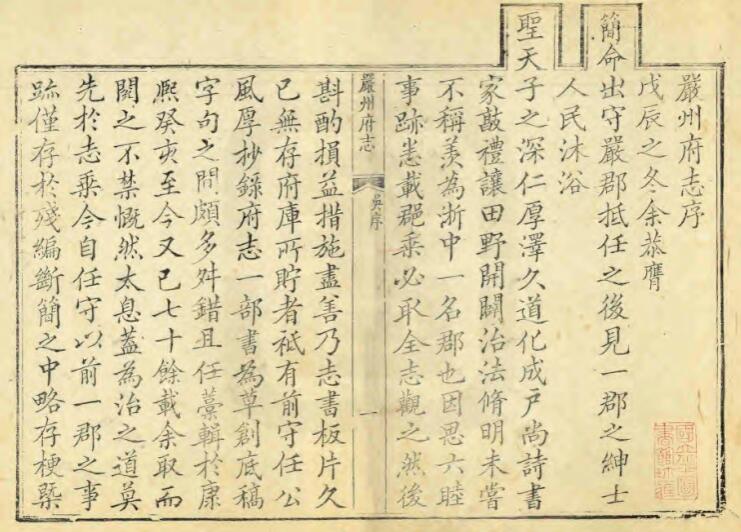 嚴州府志序
戊辰之冬余恭膺
簡命出守嚴郡抵任之後見一郡之紳士
人民沐浴
聖天子之深仁厚澤久道化成戶尚詩書
家敲禮讓田野開闢治法脩明未嘗
不稱羨為浙中一名郡也因思六睦
事跡悉載郡乗必取全志觀之然後
嚴州府志
吳序
一
斟酌損益措施盡善乃志書板片久
已無存府庫所貯者祗有前守任公
風厚抄錄府志一部書為草創底稿
字句之間頗多舛錯且任藁輯於康
熈癸亥至今又已七十餘載余取而
閱之不禁慨然太息蓋為治之道莫
先於志乗今自任守以前一郡之事
跡僅存於殘編斷簡之中略存梗槩